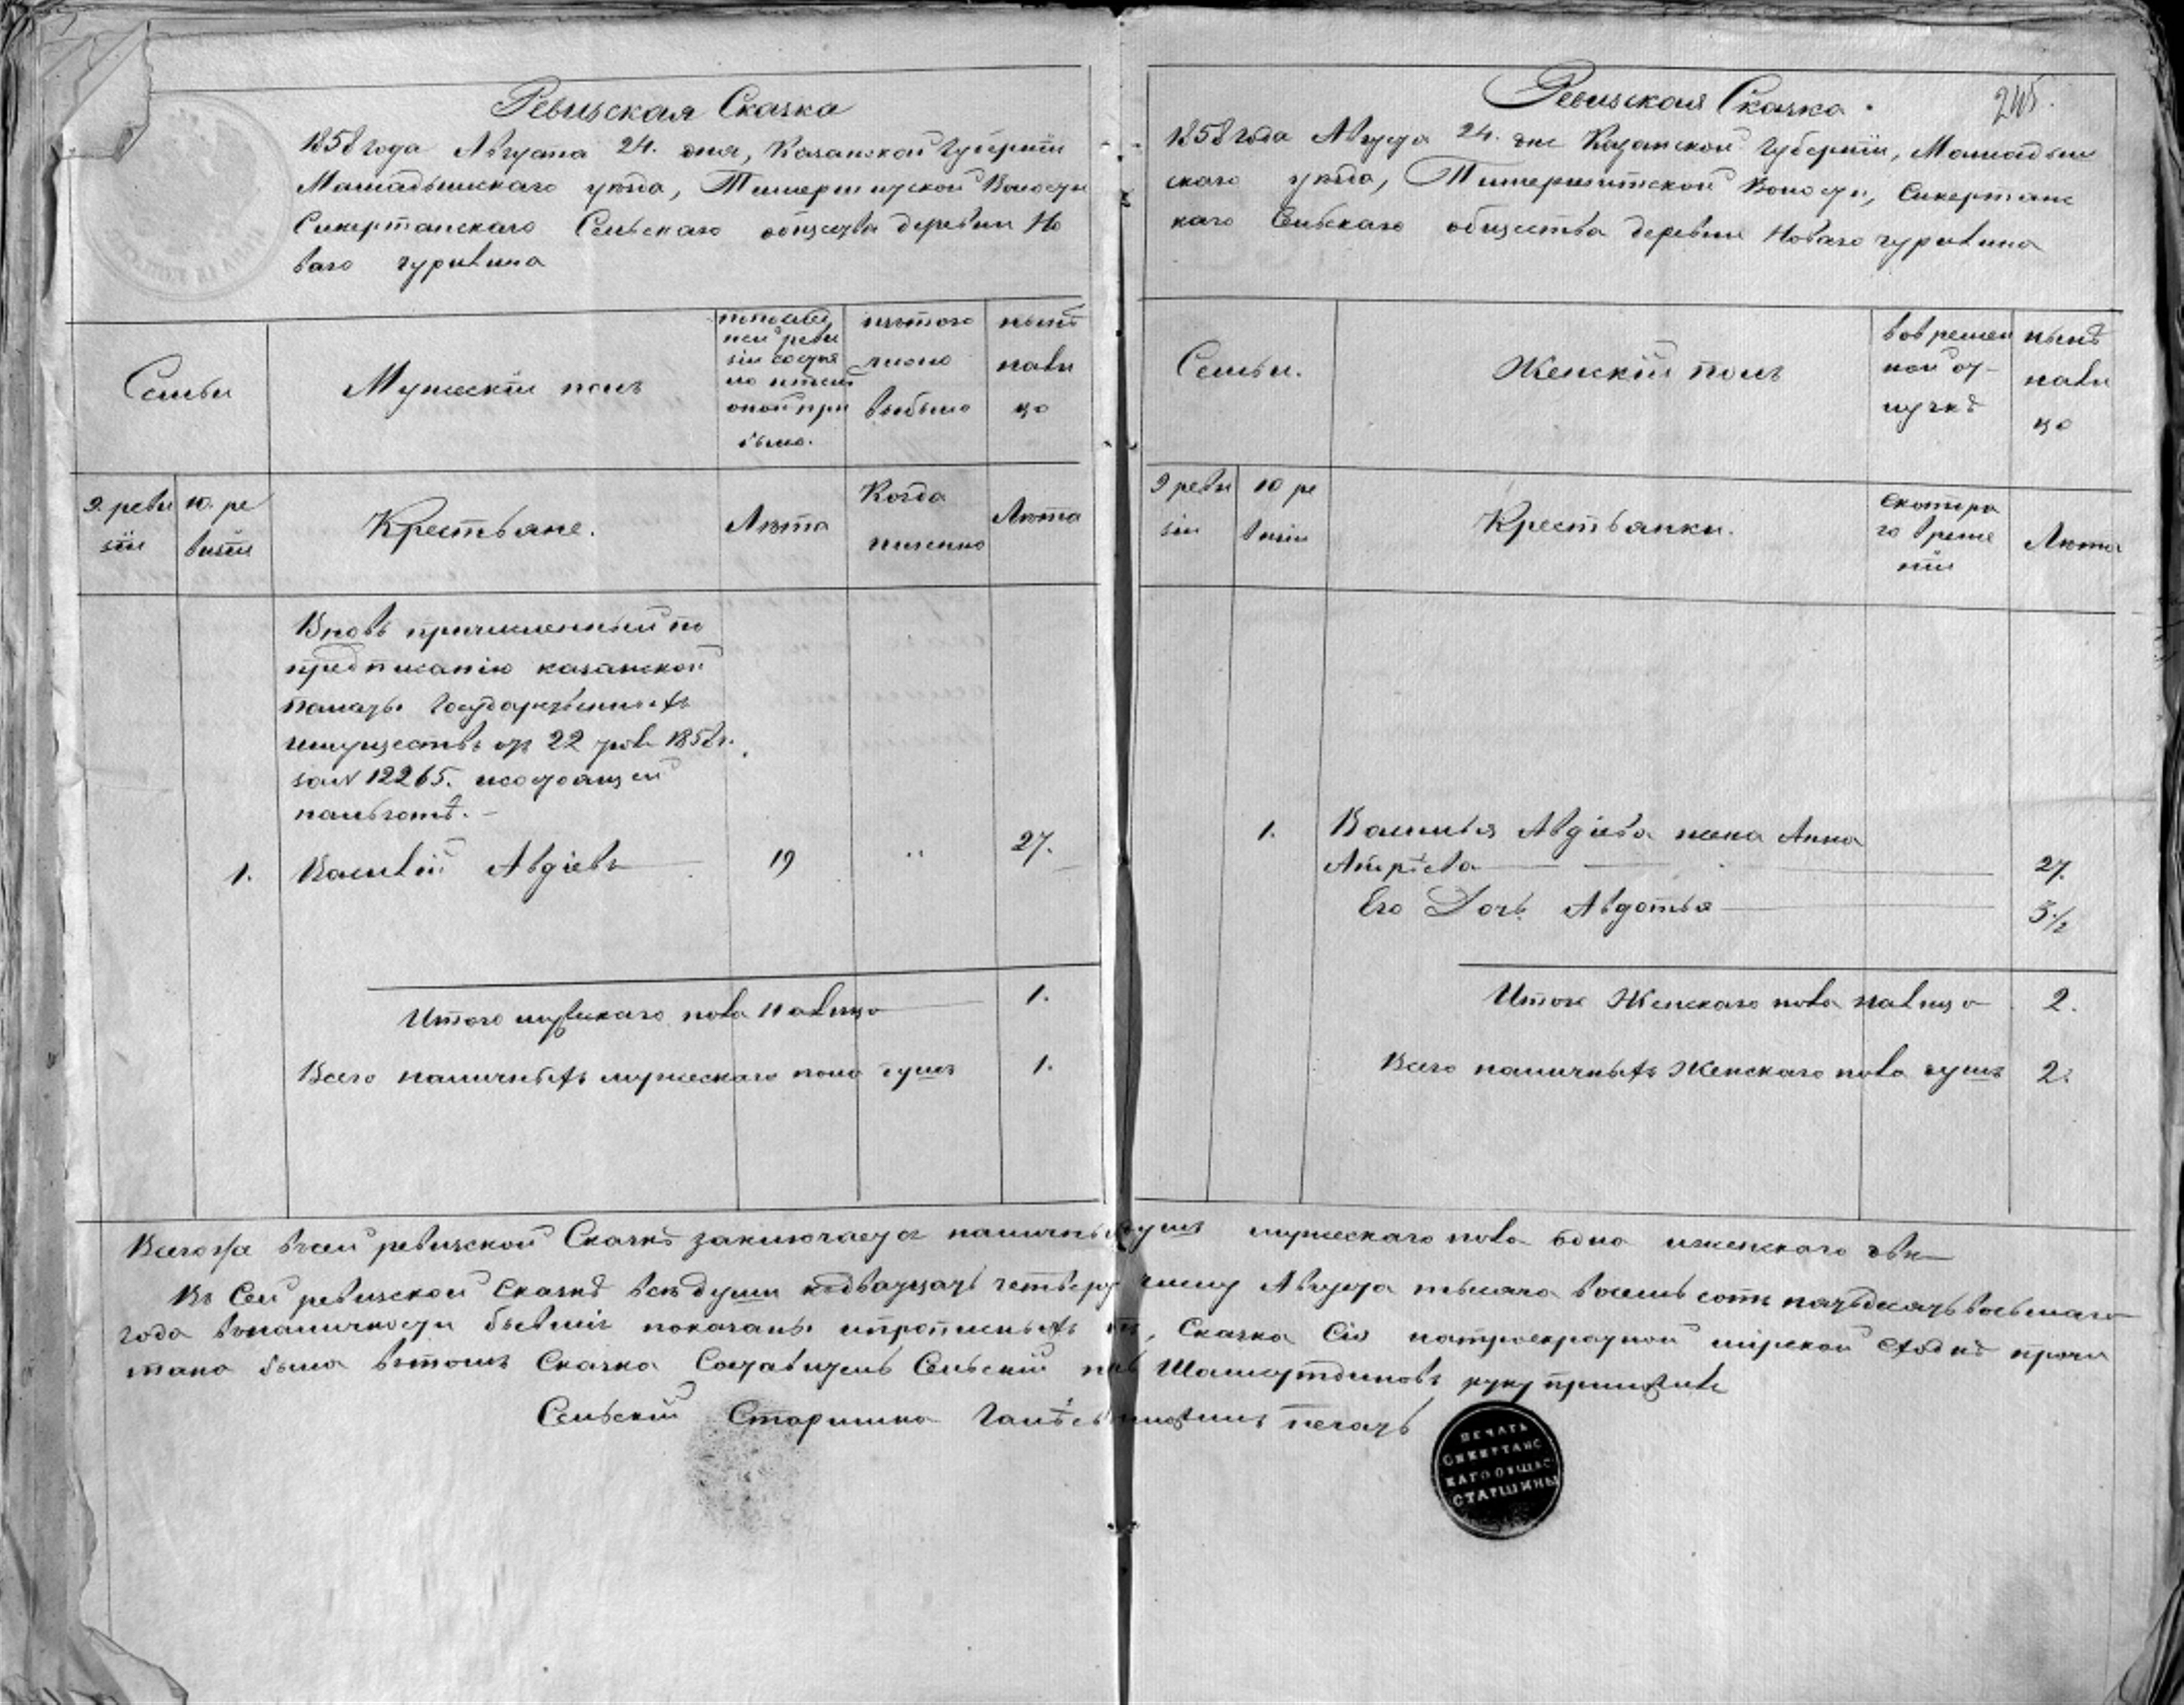 Ревизская Сказка
1858 года Августа 24. дня, Казанской Губернiи
Мамадышскаго уѣзда, Волости
Сикертанскаго Сельскаго общества деревни Но
ваго
Семьи
Мужескiй полъ
по послѣд
ней реви
зiи состоя
ло или послѣ
оной при
было.
изъ того
число
выбыло
нынѣ
нали
цо
9. реви
зiи
10. ре
визiи
Крестьяне.
Лѣта
Когда
именно
Лѣта
Вновь причисленный по
предписанiю казанской
палаты Государственныхъ
имуществъ отъ 22 1858 г.
за N 12265. и состоящей
на льготѣ. –
1. Василiй Авдiевъ 19 " 27.
Итого мужескаго пола налицо 1.
Всего наличныхъ мужескаго пола душъ 1.
Ревизская Сказка.
245.
1858 года Августа 24. дня Казанской Губернiи, Мамадыш
скаго уѣзда, Волости, Сикертанс
каго Сельскаго общества деревни Новаго
Семьи.
Женскiй полъ
во времен
ной от-
лучкѣ
нынѣ
нали
цо
9 реви
зiи
10 ре
визiи
Крестьянки.
Скотора
го време
ни
Лѣта
1. Василья Авдiева жена Анна
27.
Его Дочь Авдотья 3 1/2
Итого Женскаго пола налицо 2.
Всего наличныхъ Женскаго пола душъ 2.
Всего въ сей ревизской Сказкѣ заключается наличныхъ душъ мужескаго пола одна и женскаго двѣ
Въ Сей ревизской Сказкѣ всѣ души къ двадцать четвертому числу Августа тысяча восемь сотъ пятьдесятъ восьмаго
года въ наличности бывшiя показаны и нѣтъ, Сказка Сiя на троекратной мiрской Сходкѣ прочи
тана была въ томъ Сказка Составитель Сельскiй руку приложилъ
Сельскiй Старшина приложилъ печать
ПЕЧАТЬ
СИКЕРТАНС
КАГО ОБЩЕС
СТАРШИНЫ